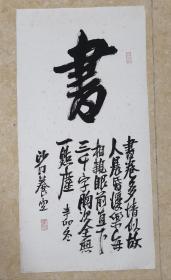 書
書卷多情似故
人晨昏憂樂每
相親眼前直下
三千字胸次全無
一點塵 辛卯冬
沙門養空